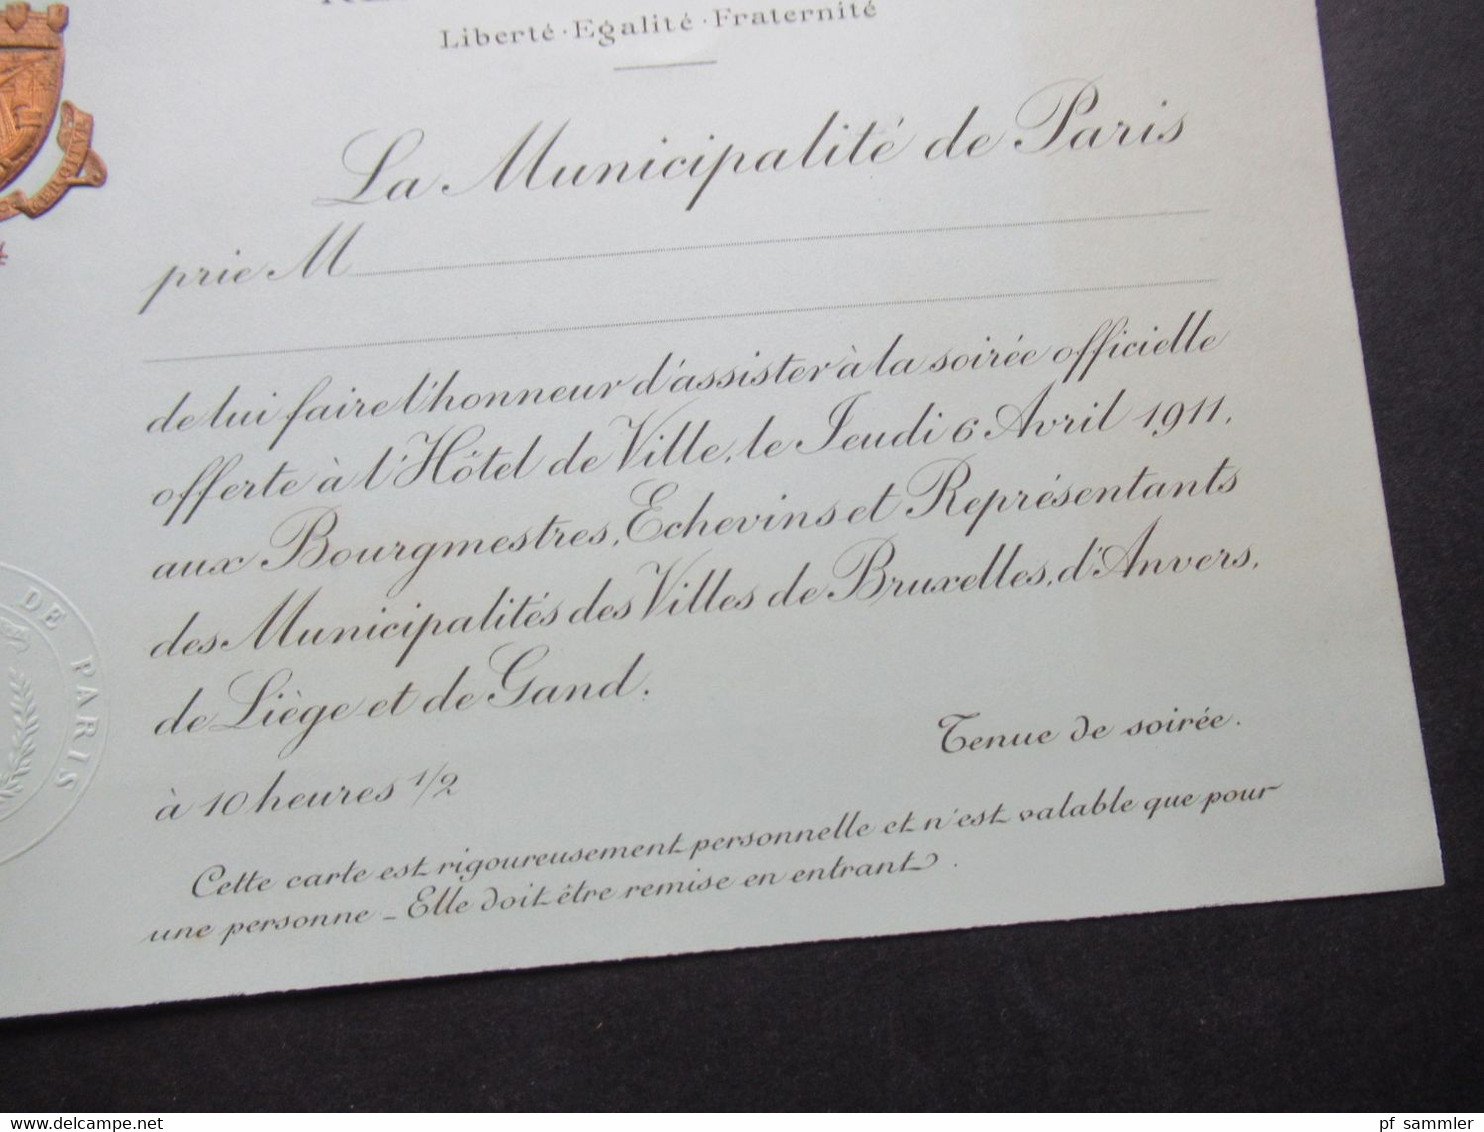 Liberté · Egalité · Fraternité
La Municipalité de Paris
prie M
de lui faire l'honneur d'assister à la soirée officielle
offerte à l'Hôtel de Ville, le Jeudi 6 Avril 1911,
aux Bourgmestres, Echevins et Représentants
des Municipalités des Villes de Bruxelles, d'Anvers,
de Liège et de Gand.
à 10 heures 1/2
Tenue de soirée.
Cette carte est rigoureusement personnelle et n'est valable que pour
une personne _ Elle doit être remise en entrant.
DE PARIS
www.delcampe.net
pf_sammler